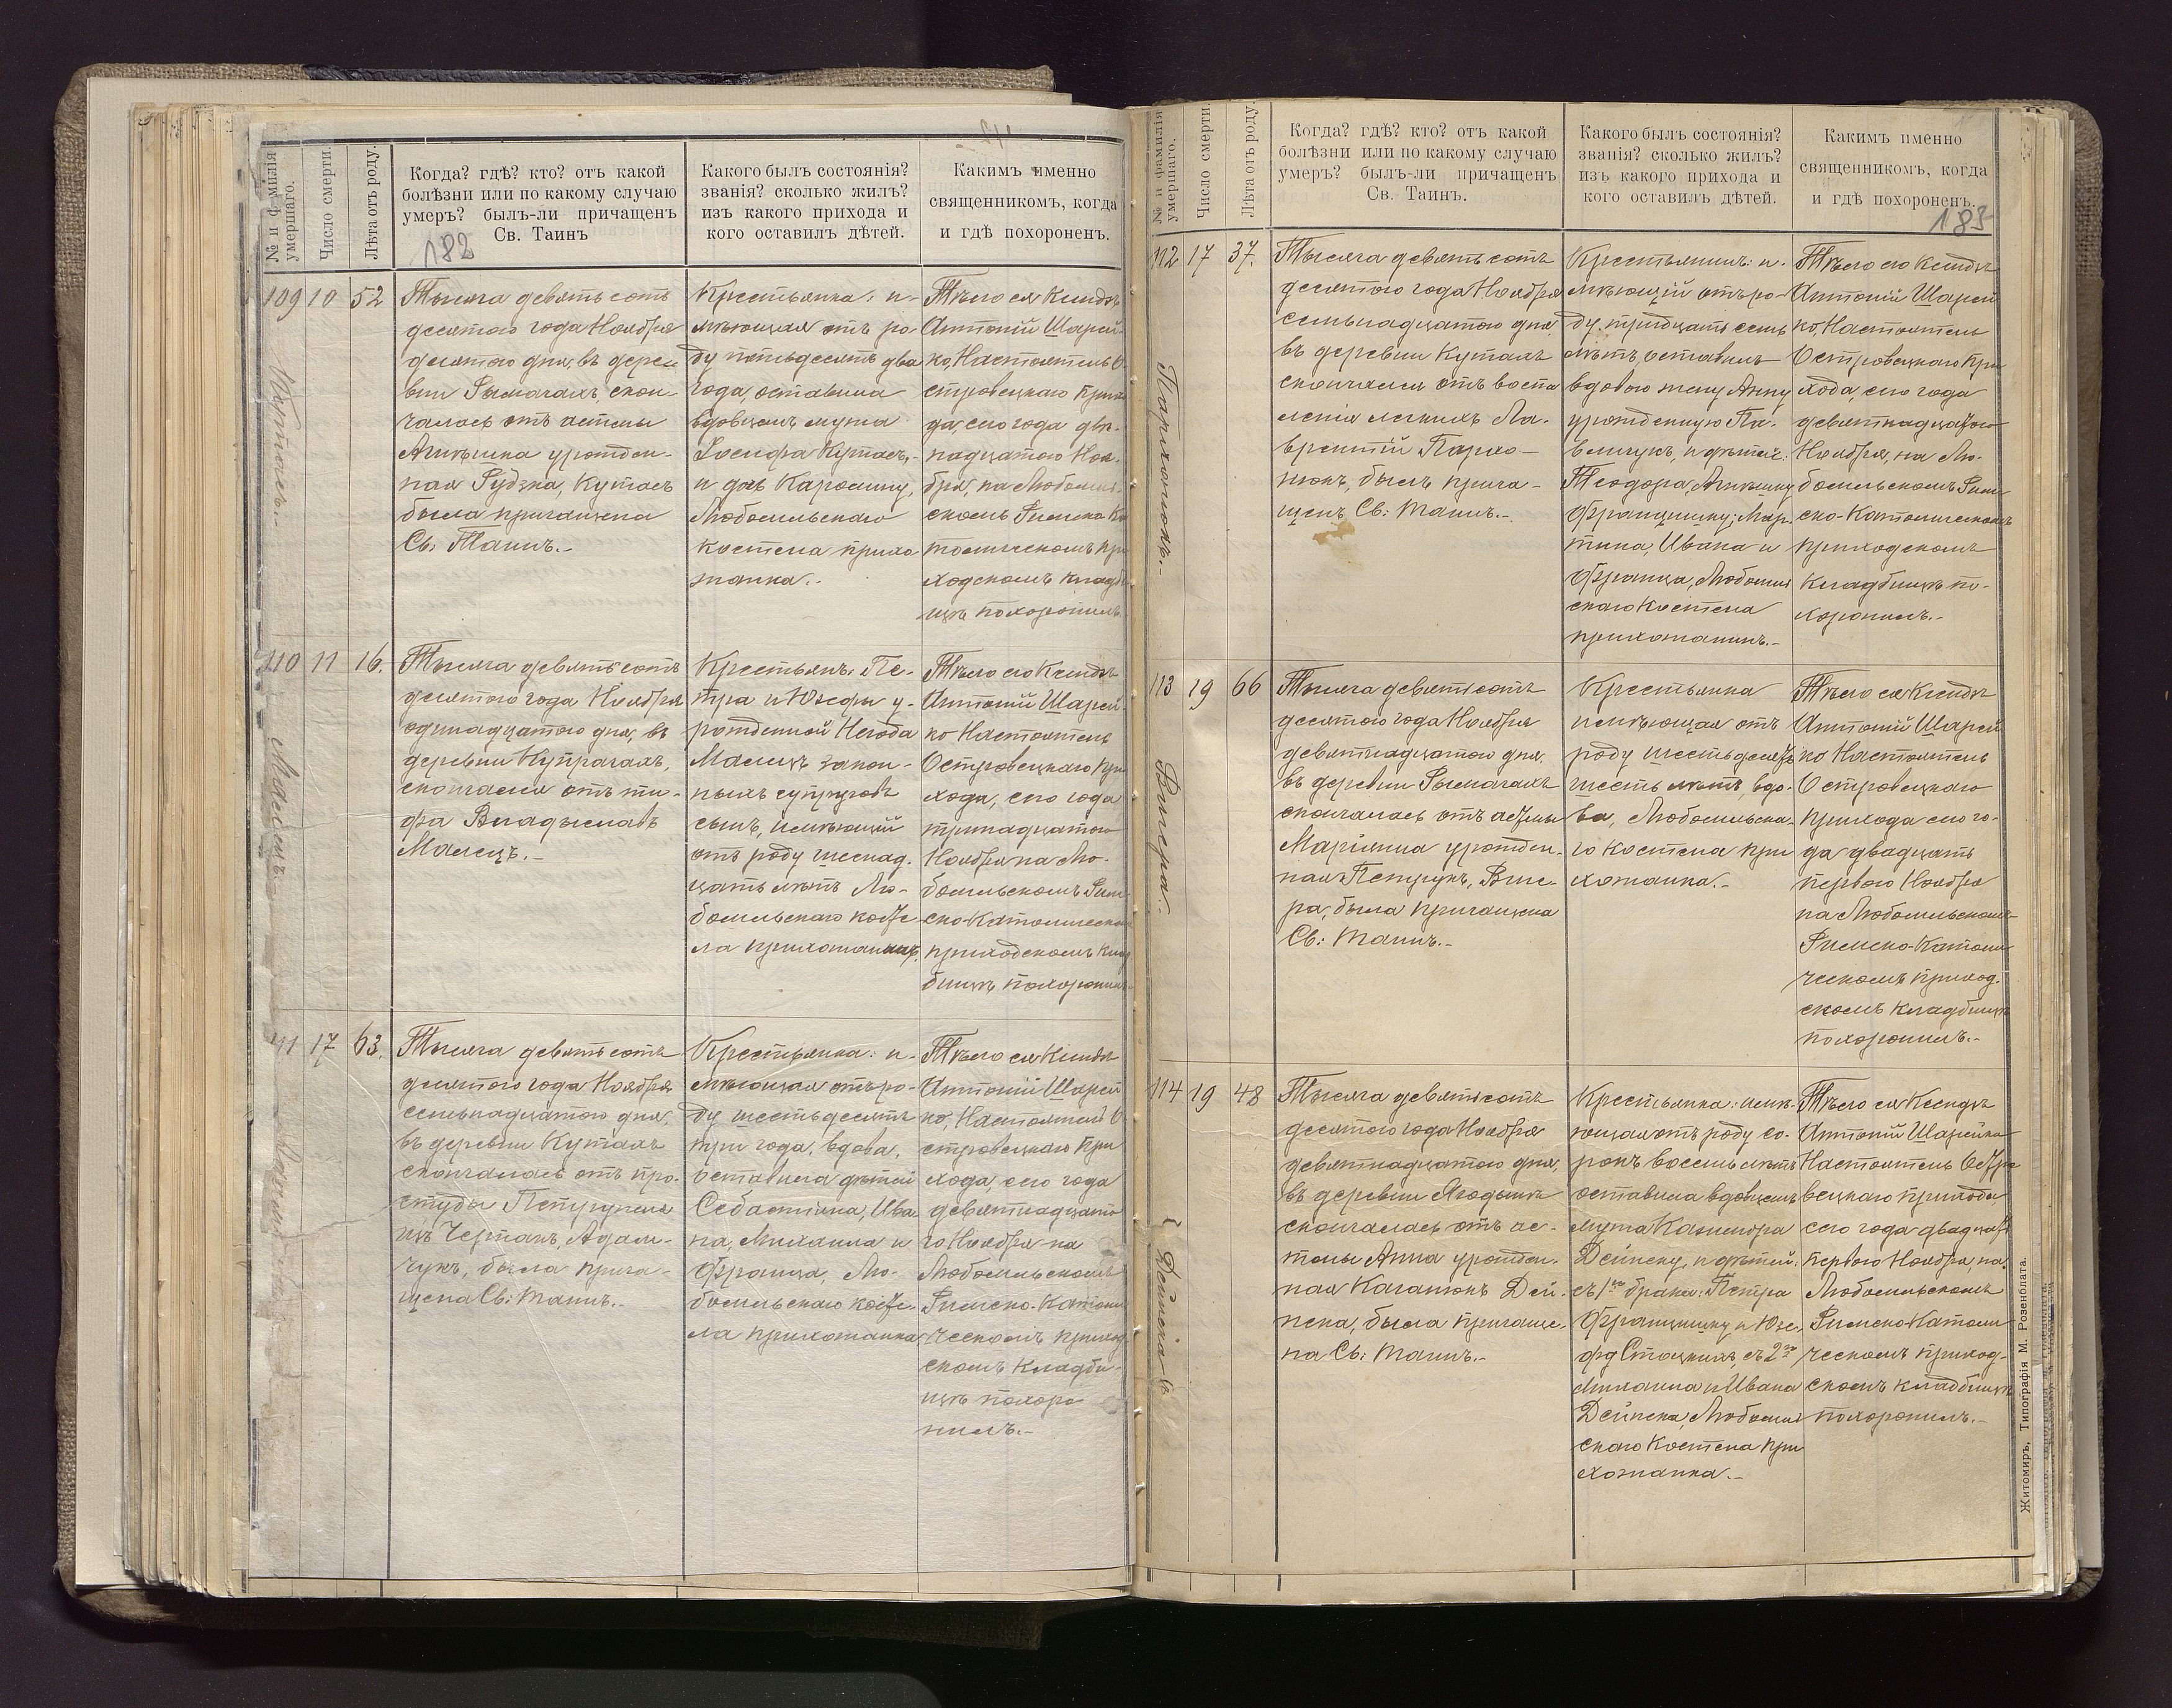 182
№ и фамилія умершаго.
Число смерти.
Лѣта отъ роду.
Когда? гдѣ? кто? отъ какой
болѣзни или по какому случаю
умеръ? былъ-ли причащенъ
Св. Таинъ
Какого былъ состоянія?
званія? сколько жилъ?
изъ какого прихода и
кого оставилъ дѣтей.
Какимъ именно
священникомъ, когда
и гдѣ похороненъ.
109 10 52
Тысяча девятьсотъ
десятого года Ноября
десятого дня, въ дерев
вни Рымачахъ, скон-
чалась отъ астмы
Агнѣшка урожден-
ная Рудзка, Кутасъ
была причащена
Св: Таинъ.-
Крестьянка: и-
мѣющая отъ ро-
ду пятьдесятъ два
года, оставила
вдовцемъ мужа
Іосифа Кутасъ,-
и дочь Каролину,
Любомльскаго
костела прихо
жанка.-
Тѣло ея Ксендзъ
Антоній Шарей-
ко, Настоятель О-
стровецкаго прихо
да, сего года две-
надцатого Ноя-
бря, на Любомль-
скомъ Римско-Ка
толическомъ при
ходскомъ кладби
щѣ похоронилъ.
110 11 16.
Малецъ.-
Тысяча девятьсотъ
десятого года Ноября
одинадцатого дня, въ
деревни Купрачахъ,
скончался отъ ти-
фа Владыславъ
Малецъ.-
Крестьянъ: Пе-
тра и Юзефы у-
рожденной Негода
Малецъ закон-
ныхъ супруговъ
сынъ, имѣющій
отъ роду шеснад-
цать лѣтъ Лю-
бомльскаго косте-
ла прихожанинъ.
Тѣло его Ксендзъ
Антоній Шарей-
ко Настоятель
Островецкаго при
хода, сего года
тринадцатого
Ноября на Лю-
бомльскомъ Рим
ско-Католическо
приходскомъ клад
бищѣ похоронилъ
111 17 63.
Тысяча девятьсотъ
десятого года Ноября
семьнадцатого дня,
въ деревни Кутахъ
скончалась отъ про-
студы Петрунеля
изъ Черпакъ, Адам-
чукъ, была прича-
щена Св: Таинъ.-
Крестьянка: и-
мѣющая отъ ро-
ду шестьдесятъ
три года, вдова,
оставила дѣтей
Себастіана, Ива-
на, Михаила и
Франца, Лю-
бомльскаго косте-
ла прихожанка
Тѣло ея Ксендзъ
Антоній Шарей
ко, Настоятель О
стровецкаго при
хода, сего года
девятнадцато
го Ноября на
Любомльскомъ
Римско-Католи
ческомъ приход
скомъ кладби-
щѣ похоро
нилъ.-
183
№ и фамилія умершаго.
Число смерти.
Лѣта отъ роду.
Когда? гдѣ? кто? отъ какой
болѣзни или по какому случаю
умеръ? былъ-ли причащенъ
Св. Таинъ.
Какого былъ состоянія?
званія? сколько жилъ?
изъ какого прихода и
кого оставилъ дѣтей.
Какимъ именно
священникомъ, когда
и гдѣ похороненъ.
112 17 37.
Пархомюкъ.-
Тысяча девятьсотъ
десятого года Ноября
семьнадцатого дня
въ деревни Кутахъ
скончался отъ воспа
ленія легкихъ Ла-
врентій Пархо-
мюкъ, былъ прича-
щенъ Св: Таинъ.-
Крестьянинъ: и-
мѣющій отъ ро-
ду тридцать семь
лѣтъ, оставилъ
вдовою жену Анну
урожденную Па-
влищукъ, и дѣтей:
Теодора, Агнѣшку
Францишку, Мар-
тина, Ивана и
Франца, Любомль
скаго Костела
прихожанинъ.-
Тѣло его Ксендзъ
Антоній Шарей
ко, Настоятель
Островецкаго при
хода, сего года
девятнадцатого
Ноября, на Лю-
бомльскомъ Рим
ско-Католическомъ
приходскомъ
кладбищѣ по-
хоронилъ.-
113 19 66
Вигера.-
Тысяча девятьсотъ
десятого года Ноября
девятнадцатого дня,
въ деревни Рымачахъ
скончалась отъ астмы
Маріанна урожден-
ная Петрукъ, Виге-
ра, была причащена
Св: Таинъ.-
Крестьянка
имѣющая отъ
роду шестьдесятъ
шесть лѣтъ, вдо-
ва, Любомльска-
го костела при
хожанка.-
Тѣло ея Ксендзъ
Антоній Шарей
ко Настоятель
Островецкаго
прихода сего го-
да двадцать
перваго Ноября
на Любомльскомъ
Римско-Католи
ческомъ приход-
скомъ кладбищѣ
похоронилъ.-
114 19 48
Дейнека
Тысяча девятьсотъ
десятого года Ноября
девятнадцатого дня,
въ деревни Ягодынѣ
скончалась отъ ас-
тмы Анна урожден-
ная Каганюкъ Дей-
нека, была причаще-
на Св: Таинъ.-
Крестьянка: имѣ-
ющая отъ роду со-
рокъ восемь лѣтъ
оставила вдовцемъ
мужа Казимира
Дейнеку, и дѣтей:
съ 1го брака: Петра
Францишку и Юзе-
фа Стоцкихъ, съ 2го
Михаила и Ивана
Дейнека, Любомль
скаго Костела при
хожанка.-
Тѣло ея Ксендзъ
Антоній Шарейко
Настоятель Остро
вецкаго прихода,
сего года двадцать
перваго Ноября, на
Любомльскомъ
Римско Католи
ческомъ приход-
скомъ кладбищѣ
похоронилъ.-
Житомиръ, Типографія М. Розенблата.